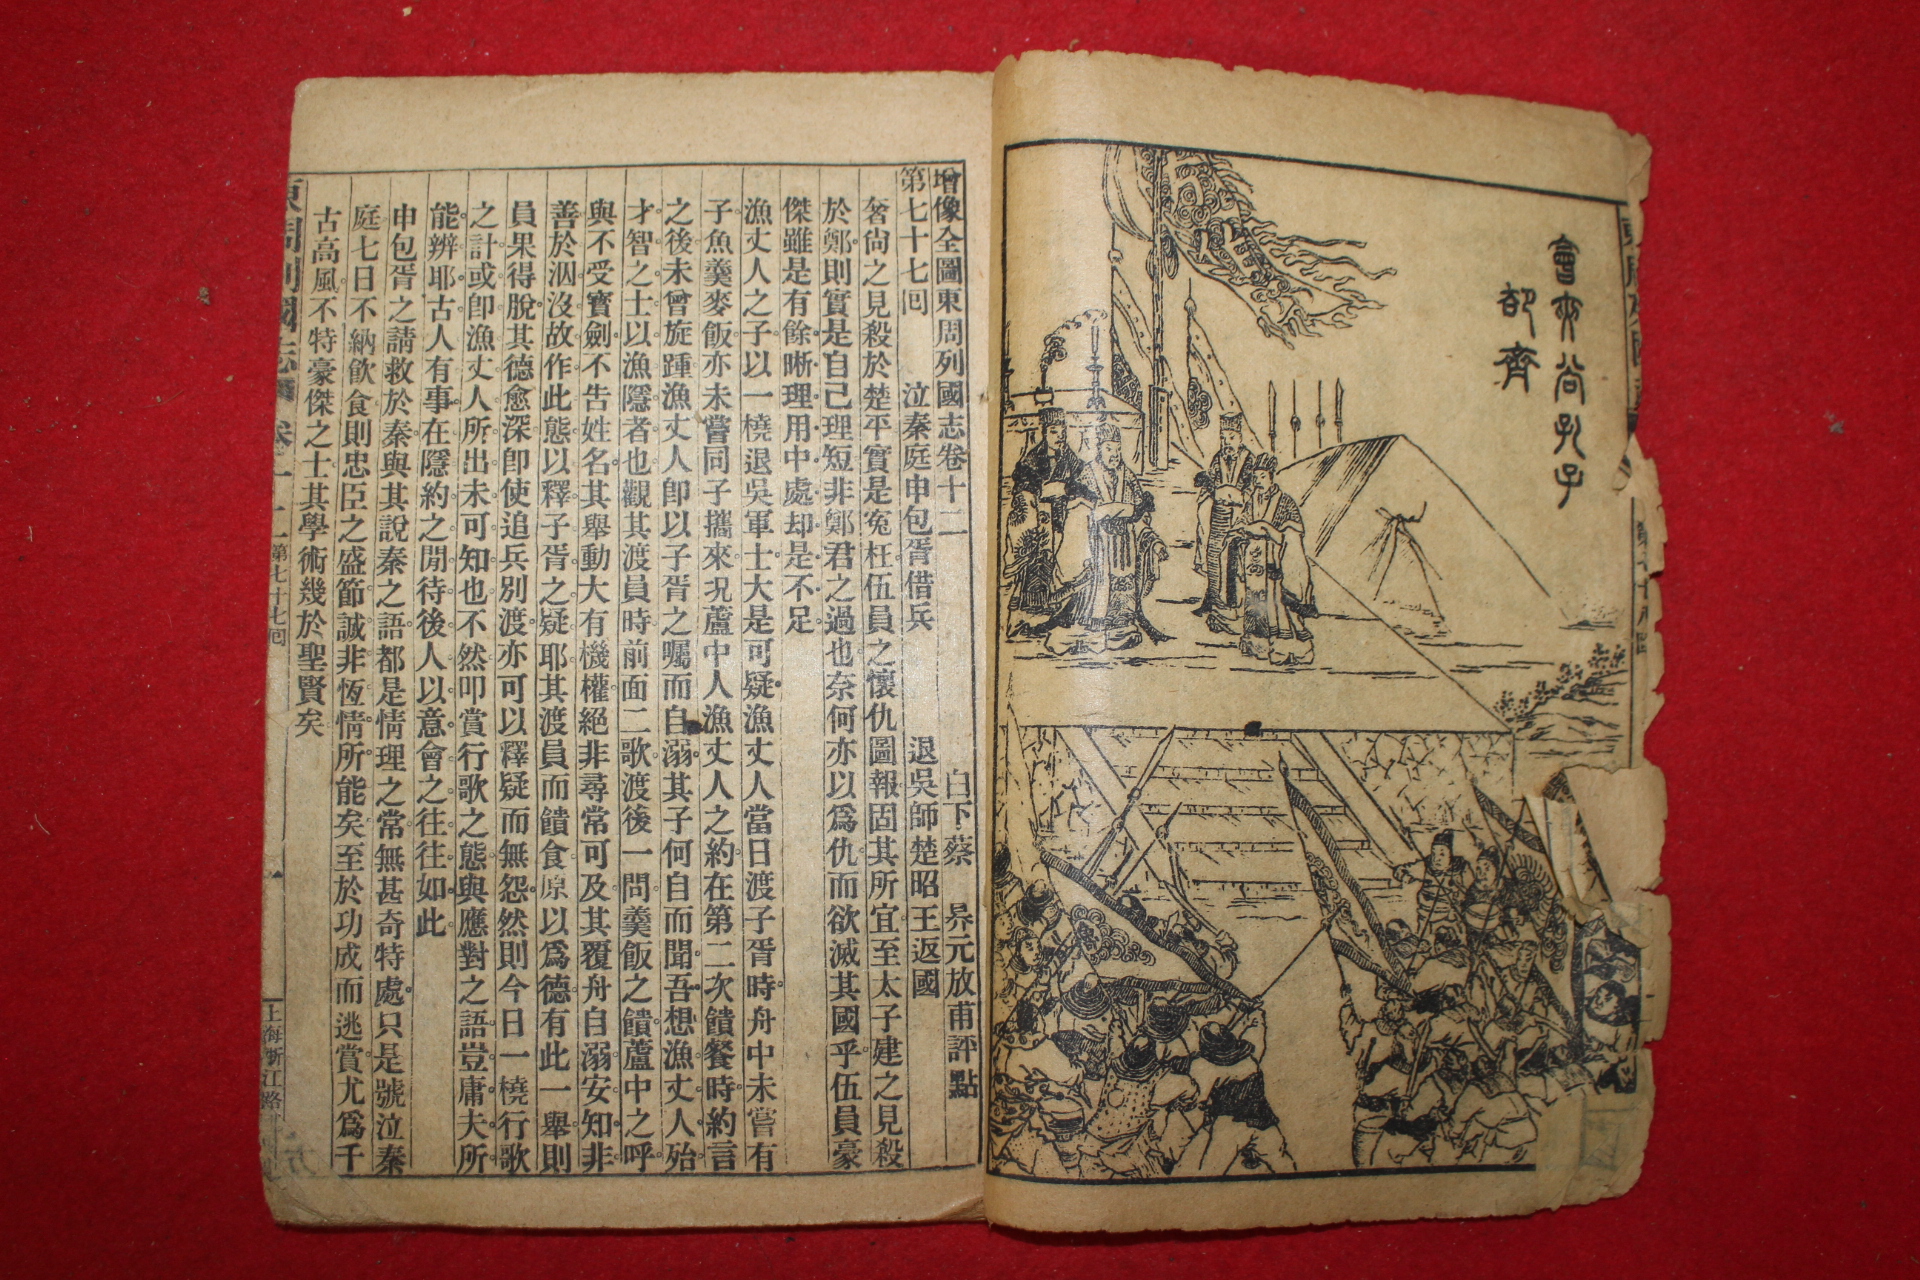 會夾谷孔子
卻齊
增像全圖東周列國志卷十二
白下蔡　昇元放甫評點
第七十七囘　泣秦庭申包胥借兵　退吳師楚昭王返國
奢尙之見殺於楚平實是冤枉伍員之懷仇圖報固其所宜至太子建之見殺
於鄭則實是自己理短非鄭君之過也奈何亦以爲仇而欲滅其國乎伍員豪
傑雖是有餘晰理用中處却是不足
漁丈人之子以一橈退吳軍士大是可疑漁丈人當日渡子胥時舟中未嘗有
子魚羹麥飯亦未嘗同子攜來况蘆中人漁丈人之約在第二次饋餐時約言
之後未曾旋踵漁丈人卽以子胥之囑而自溺其子何自而聞吾想漁丈人殆
才智之士以漁隱者也觀其渡員時前面二歌渡後一問羹飯之饋蘆中之呼
與不受寳劍不告姓名其舉動大有機權絕非尋常可及其覆舟自溺安知非
善於泅沒故作此態以釋子胥之疑耶其渡員而饋食原以爲德有此一舉則
員果得脫其德愈深卽使追兵別渡亦可以釋疑而無怨然則今日一橈行歌
之計或卽漁丈人所出未可知也不然叩賞行歌之態與應對之語豈庸夫所
能辨耶古人有事在隱約之閒待後人以意會之往往如此
申包胥之請救於秦與其說秦之語都是情理之常無甚奇特處只是號泣秦
庭七日不納飲食則忠臣之盛節誠非恆情所能矣至於功成而逃賞尤爲千
古高風不特豪傑之士其學術幾於聖賢矣
東周列國志
第七十七囘
上海浙江路